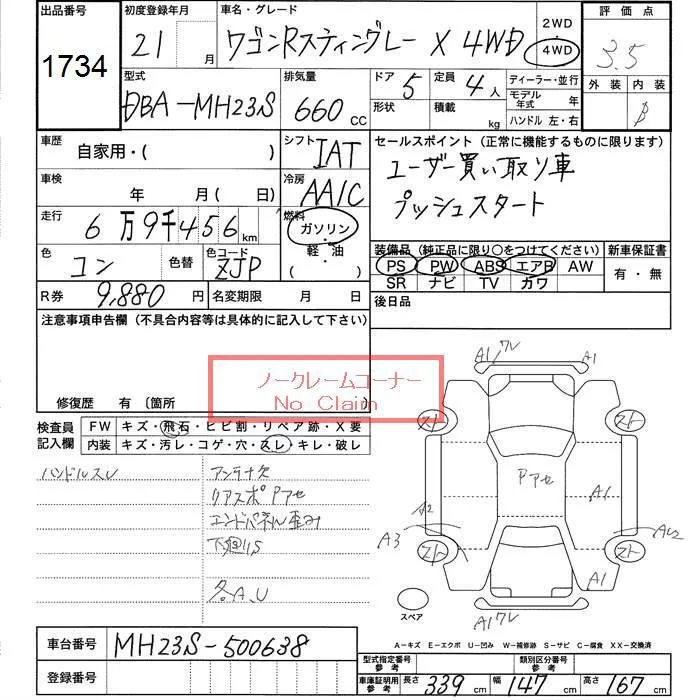 出品番号 1734
初度登録年月 21 月
車名・グレード ワゴンRスティングレー X 4WD
2WD
4WD
評価点 3.5
外装 内装 B
型式 DBA-MH23S
排気量 660 CC
ドア 5
形状
定員 4 人
積載 kg
ディーラー・並行
モデル年式 年
ハンドル 左・右
車歴 自家用・( )
シフト IAT
車検 年 月( 日)
冷房 AAC
走行 6万9千456km
燃料 ガソリン・軽油 ( )
色 コン
色替
色コード ZJP
R券 9,880 円
名変期限 月 日
セールスポイント (正常に機能するものに限ります)
ユーザー買い取り車
プッシュスタート
装備品 (純正品に限り○をつけてください)
PS PW ABS エアB AW
SR ナビ TV カワ
新車保証書
有・無
後日品
注意事項申告欄 (不具合内容等は具体的に記入して下さい)
ノークレームコーナー
No Claim
修復歴 有 〔箇所
検査員記入欄
FW キズ・飛石・ヒビ割・リペア跡・X要
内装 キズ・汚レ・コゲ・穴・スレ・キレ・破レ
ハンドルスレ
アンテナ欠
リアスポPアセ
エンドパネル歪み
下回りS
各A.U
A1ワレ A1
スト スト
Pアセ
A2 A1
A3 スト スト
A1
スペア
A1ワレ
A-キズ E-エクボ U-凹み W-補修跡 S-サビ C-腐食 XX-交換済
車台番号 MH23S-500638
登録番号
型式指定番号 参考
類別区分番号 参考
車庫証明用 参考 長さ 339 cm 幅 147 cm 高さ 167 cm